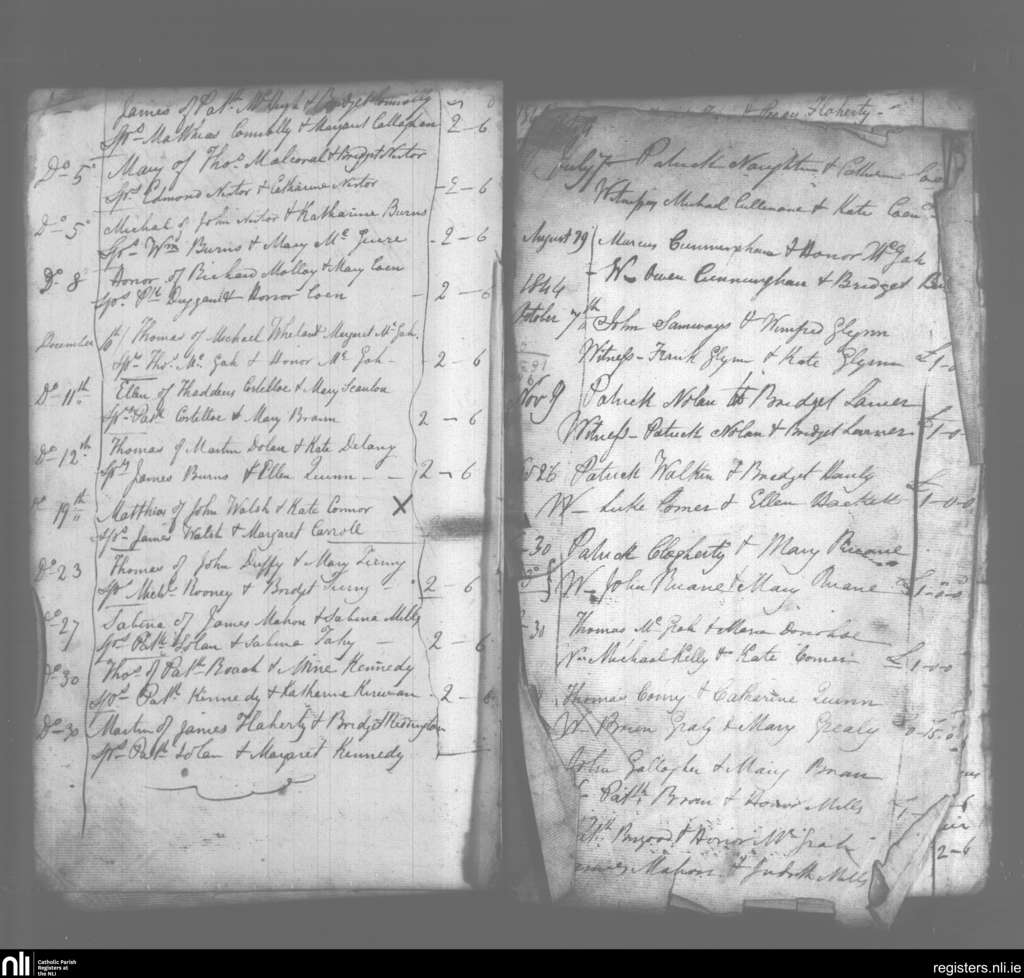 James of Patk. McHugh & Bridget Connolly
Sps. Mathias Connolly & Margaret Callaghan 2 - 6
Do. 5 Mary of Thos. & Bridget Nestor
Sps. Edmond Nestor & Catharine Nestor - 2 - 6
Do. 5 Michael of John Nestor & Katharine Burns
Sps. Wm. Burns & Mary Mc - 2 - 6
Do. 8 Honor of Richard Molloy & Mary Coen
Sps. Duggan & Honor Coen - 2 - 6
December 6th / Thomas of Michael Whelan & Margret McGah.
Sps. Thos. Mc. Gah & Honor Mc Gah - 2 - 6
Do. 11th Ellen of Thaddeus Costelloe & Mary Scanlon
Sps. Patk. Costelloe & Mary Braun 2 - 6
Do. 12th Thomas of Martin Dolan & Kate Delany
Sps. James Burns & Ellen Quinn - - 2 - 6
19th Matthias of John Walsh & Kate Connor X
Sps. James Walsh & Margaret Carroll
Do. 23 Thomas of John Duffy & Mary Tierny
Sps. Michl. Rooney & Bridget Tierny 2 - 6
Do. 27 Sabina of James Mahon & Sabina Mills
Sps. Patk. Dolan & Sabina Fahy - 2 - 6
Do. 30 Thos. of Patk. Roach & Kennedy
Sps. Patk. Kennedy & Katharine Kirwan - 2 - 6
Do. 30 Martin of James Flaherty & Bridget
Sps. Patk. Dolan & Margaret Kennedy
Flaherty -
July 7 Patrick Naughtin & Catherine
Witness Michael Cullenane & Kate Coen
August 29 Marcus Cunningham & Honor McGah
W Owen Cunningham & Bridget
1844
October 7th John Samways & Winifred Glynn
Witness - Frank Glynn & Kate Glynn £1-0
Nov 9 Patrick Nolan to Bridget
Witness - Patrick Nolan & Bridget £1-0-
26 Patrick Walkin & Bridget
W - Luke Comer & Ellen Hackett £1-0-0
30 Patrick Clogherty & Mary Ruane
W - John Ruane & Mary Ruane £1-0-0
30 Thomas McGah & Maria Donohoe
W - Michael Kelly & Kate £1-0-0
Thomas & Catherine Quinn
W - Grealy & Mary Grealy £0-15-0
John Gallagher & Mary
Patk. & Honor Mills
& Honor McGrah
Mahon & Judith Mills 2-6
nli Catholic Parish
Registers at
the NLI
registers.nli.ie